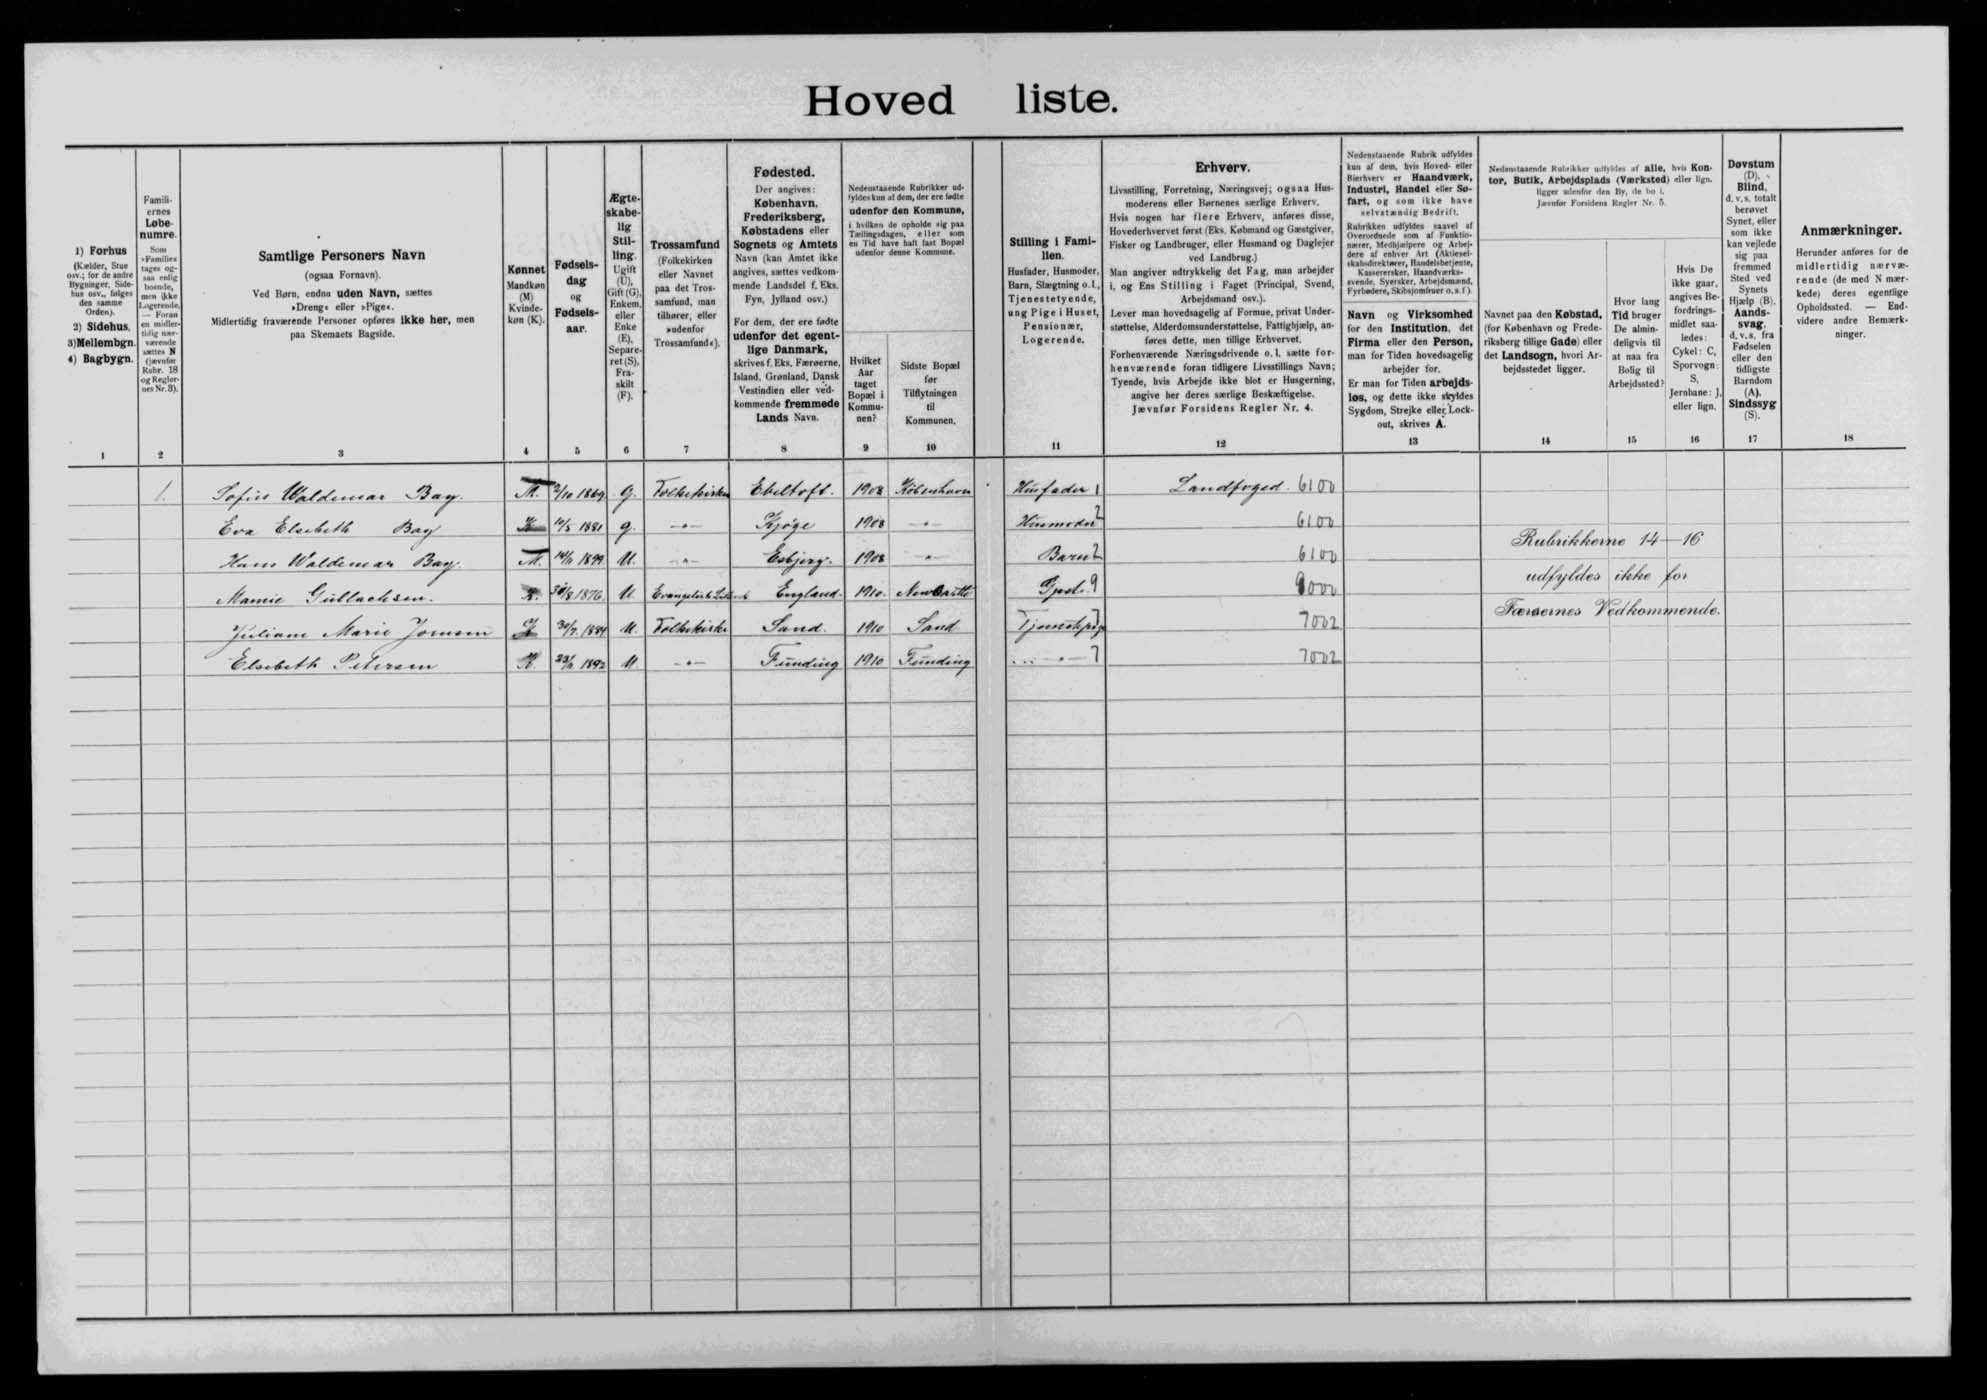 Hoved liste.
1) Forhus
(Kælder, Stue
osv.; for de andre
Bygninger, Side-
hus osv., følges
den samme
Orden).
2) Sidehus.
3) Mellembgn.
4) Bagbygn.
1
Famili-
ernes
Løbe-
numre.
Som
»Familie«
tages og-
saa enlig
boende,
men ikke
Logerende.
— Foran
en midler-
tidig nær-
værende
sættes N
(jævnfør
Rubr. 18
og Regler-
nes Nr. 3).
2
Samtlige Personers Navn
(ogsaa Fornavn).
Ved Børn, endnu uden Navn, sættes
»Dreng« eller »Pige«.
Midlertidig fraværende Personer opføres ikke her, men
paa Skemaets Bagside.
3
Kønnet
Mandkøn
(M)
Kvinde-
køn (K).
4
Fødsels-
dag
og
Fødsels-
aar.
5
Ægte-
skabe-
lig
Stil-
ling.
Ugift
(U),
Gift (G),
Enkem.
eller
Enke
(E),
Separe-
ret (S),
Fra-
skilt
(F).
6
Trossamfund
(Folkekirken
eller Navnet
paa det Tros-
samfund, man
tilhører, eller
»udenfor
Trossamfund«).
7
Fødested.
Der angives:
København,
Frederiksberg,
Købstadens eller
Sognets og Amtets
Navn (kan Amtet ikke
angives, sættes vedkom-
mende Landsdel f. Eks.
Fyn, Jylland osv.)
For dem, der ere fødte
udenfor det egent-
lige Danmark,
skrives f. Eks. Færøerne,
Island, Grønland, Dansk
Vestindien eller ved-
kommende fremmede
Lands Navn.
8
Nedenstaaende Rubrikker ud-
fyldes kun af dem, der ere fødte
udenfor den Kommune,
i hvilken de opholde sig paa
Tællingsdagen, eller som
en Tid have haft fast Bopæl
udenfor denne Kommune.
Hvilket
Aar
taget
Bopæl i
Kommu-
nen?
9
Sidste Bopæl
før
Tilflytningen
til
Kommunen.
10
Stilling i Fami-
lien.
Husfader, Husmoder,
Barn, Slægtning o. l.,
Tjenestetyende,
ung Pige i Huset,
Pensionær,
Logerende.
11
Erhverv.
Livsstilling, Forretning, Næringsvej; ogsaa Hus-
moderens eller Børnenes særlige Erhverv.
Hvis nogen har flere Erhverv, anføres disse,
Hovederhvervet først (Eks. Købmand og Gæstgiver,
Fisker og Landbruger, eller Husmand og Daglejer
ved Landbrug.)
Man angiver udtrykkelig det Fag, man arbejder
i, og Ens Stilling i Faget (Principal, Svend,
Arbejdsmand osv.).
Lever man hovedsagelig af Formue, privat Under-
støttelse, Alderdomsunderstøttelse, Fattighjælp, an-
føres dette, men tillige Erhvervet.
Forhenværende Næringsdrivende o. l. sætte for-
henværende foran tidligere Livsstillings Navn;
Tyende, hvis Arbejde ikke blot er Husgerning,
angive her deres særlige Beskæftigelse.
Jævnfør Forsidens Regler Nr. 4.
12
Nedenstaaende Rubrik udfyldes
kun af dem, hvis Hoved- eller
Bierhverv er Haandværk,
Industri, Handel eller Sø-
fart, og som ikke have
selvstændig Bedrift.
Rubrikken udfyldes saavel af
Overordnede som af Funktio-
nærer, Medhjælpere og Arbej-
dere af enhver Art (Aktiesel-
skabsdirektører, Handelsbetjente,
Kasserersker, Haandværks-
svende, Syersker, Arbejdsmænd,
Fyrbødere, Skibsjomfruer o. s. f.).
Navn og Virksomhed
for den Institution, det
Firma eller den Person,
man for Tiden hovedsagelig
arbejder for.
Er man for Tiden arbejds-
løs, og dette ikke skyldes
Sygdom, Strejke eller Lock-
out, skrives A.
13
Nedenstaaende Rubrikker udfyldes af alle, hvis Kon-
tor, Butik, Arbejdsplads (Værksted) eller lign.
ligger udenfor den By, de bo i.
Jævnfør Forsidens Regler Nr. 5.
Navnet paa den Købstad,
(for København og Frede-
riksberg tillige Gade) eller
det Landsogn, hvori Ar-
bejdsstedet ligger.
14
Hvor lang
Tid bruger
De almin-
deligvis til
at naa fra
Bolig til
Arbejdssted?
15
Hvis De
ikke gaar,
angives Be-
fordrings-
midlet saa-
ledes:
Cykel: C,
Sporvogn:
S,
Jernbane: J,
eller lign.
16
Døvstum
(D).
Blind,
d. v. s. totalt
berøvet
Synet, eller
som ikke
kan vejlede
sig paa
fremmed
Sted ved
Synets
Hjælp (B).
Aands-
svag,
d. v. s. fra
Fødselen
eller den
tidligste
Barndom
(A).
Sindssyg
(S).
17
Anmærkninger.
Herunder anføres for de
midlertidig nærvæ-
rende (de med N mær-
kede) deres egentlige
Opholdssted. — End-
videre andre Bemærk-
ninger.
18
1. Sofus Waldemar Bay. M. 2/10 1869. G. Folkekirken Ebeltoft. 1908 København Husfader 1 Landfoged. 6100
Eva Elsebeth Bay K 10/5 1881 G. —"— Kjöge 1908 —"— Husmoder 2 6100
Hans Waldemar Bay. M. 1899. U. —"— Esbjerg. 1908 —"— Barn 2 6100
Mamie Gullachsen. K. 30/8 1876. U. England. 1910. Gjest. 9 9000
Juliane Marie K 30/7. 1884 U. Folkekirke Sand. 1910 Sand 7 7002
Elsebeth Petersen K. 1892 U. —"— Funding 1910 Funding —"— 7 7002
Rubrikkerne 14—16
udfyldes ikke for
Færøernes Vedkommende.